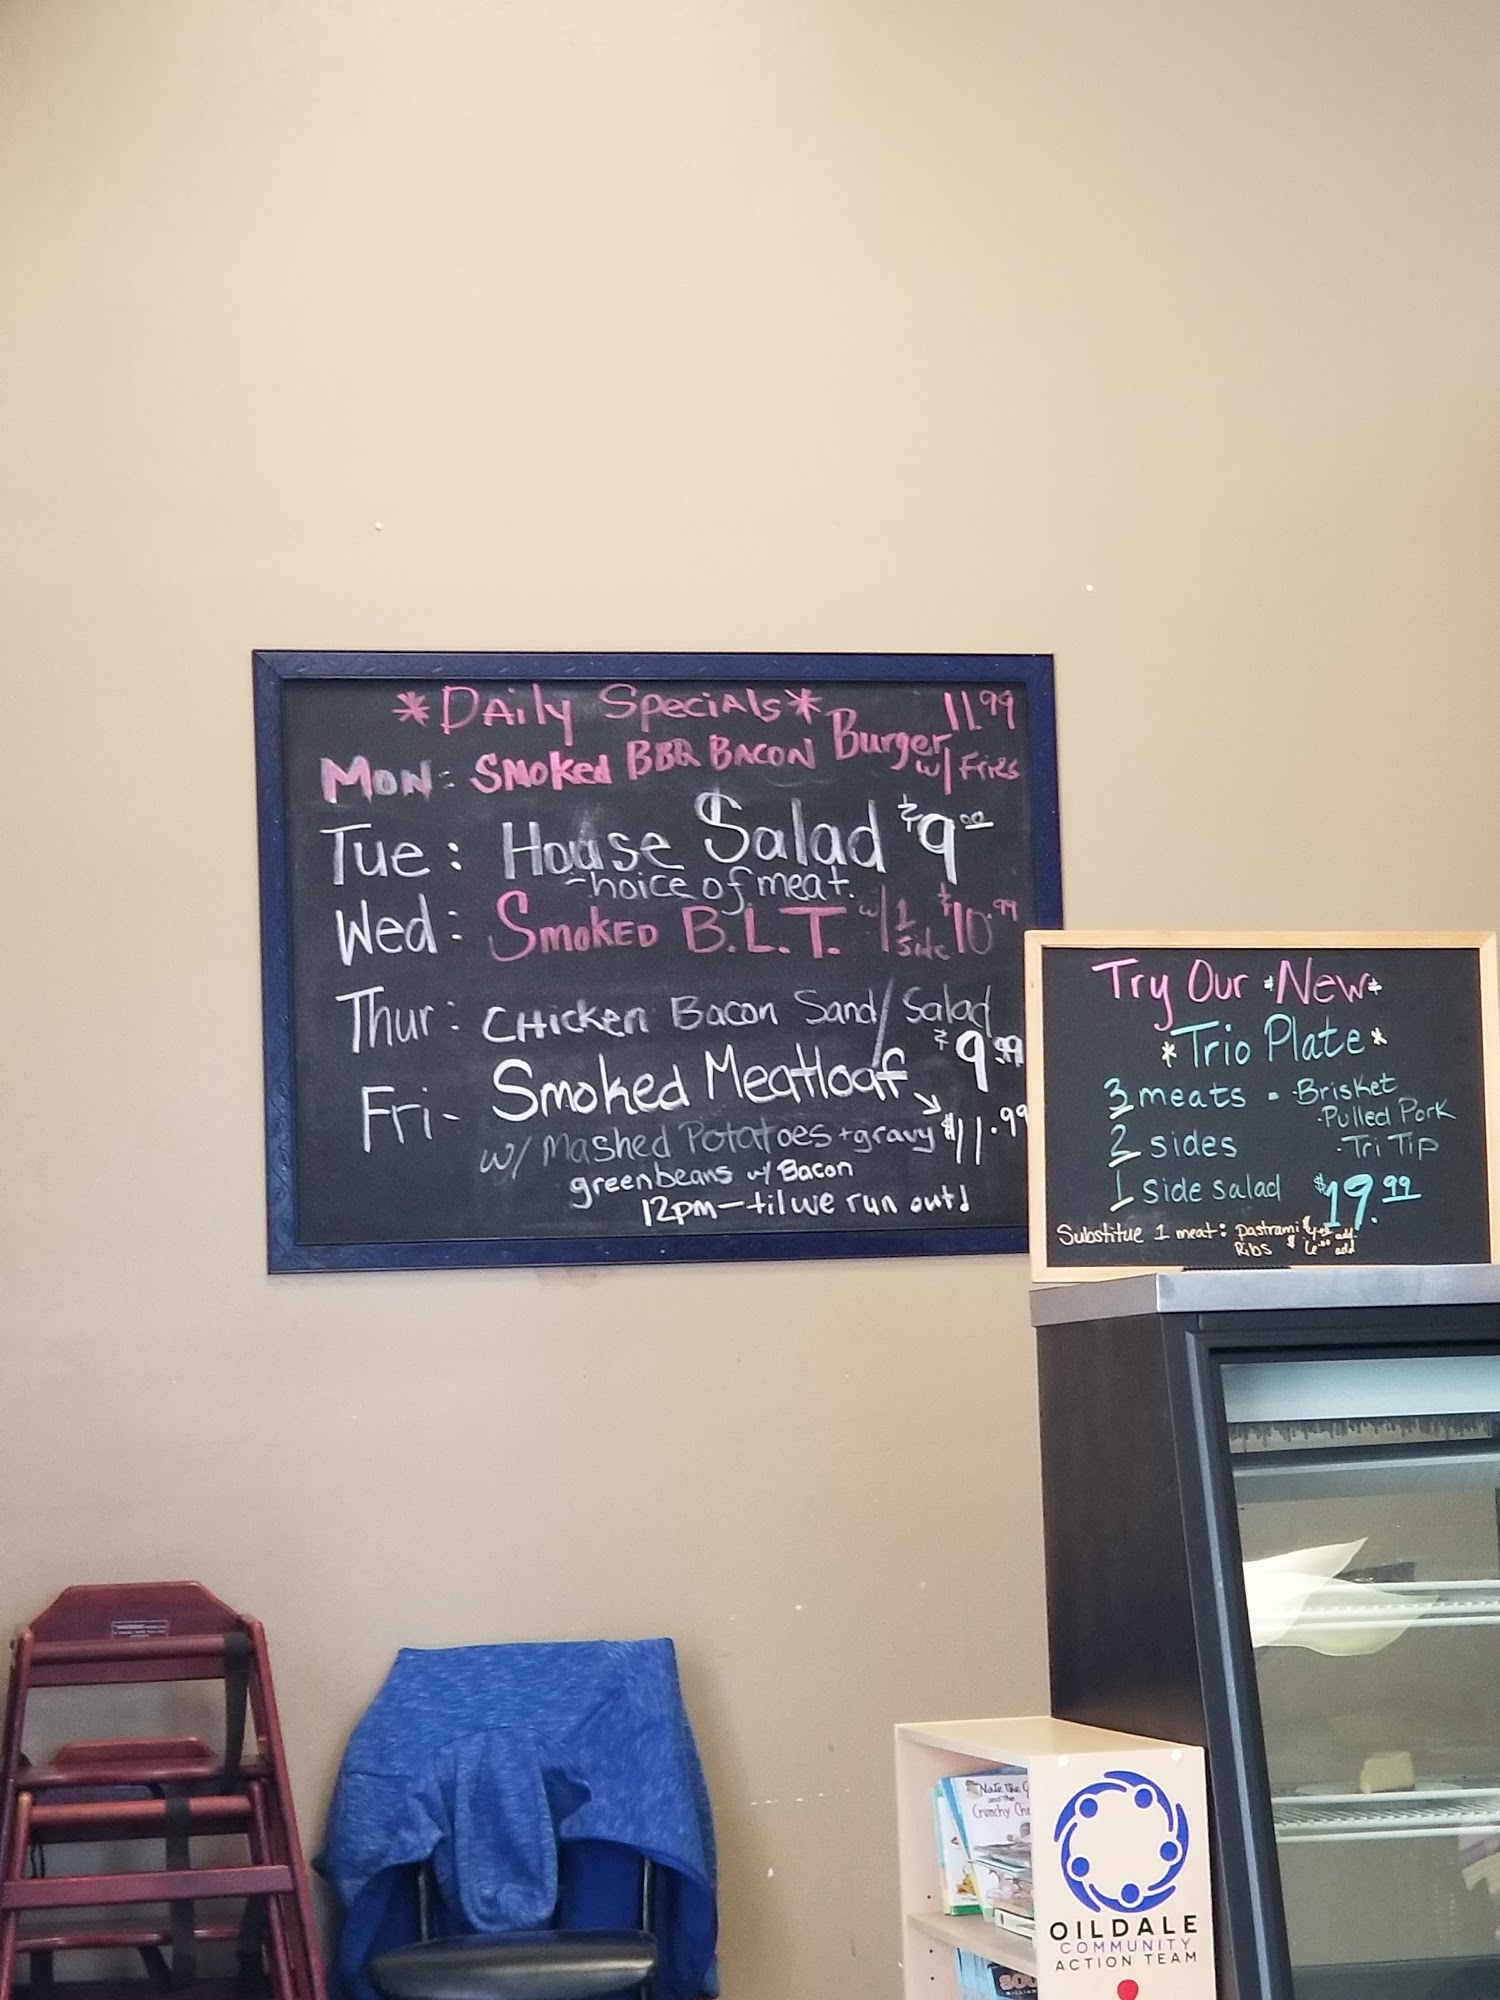 *Daily Specials*
Mon: Smoked BBQ Bacon Burger 11.99
w/ Fries
Tue: House Salad $9.00
choice of meat.
Wed: Smoked B.L.T. w/ 1 Side $10.99
Thur: Chicken Bacon Sand/Salad
$9.99
Fri- Smoked Meatloaf
w/ Mashed Potatoes + gravy $11.99
greenbeans w/ Bacon
12pm - til we run out!
Try Our *New*
*Trio Plate*
3 meats = · Brisket
· Pulled Pork
2 sides · Tri Tip
1 side salad $19.99
Substitue 1 meat: pastrami add
Ribs $ 6.00 add
Nate the
and the
Crunchy
OILDALE
COMMUNITY
ACTION TEAM